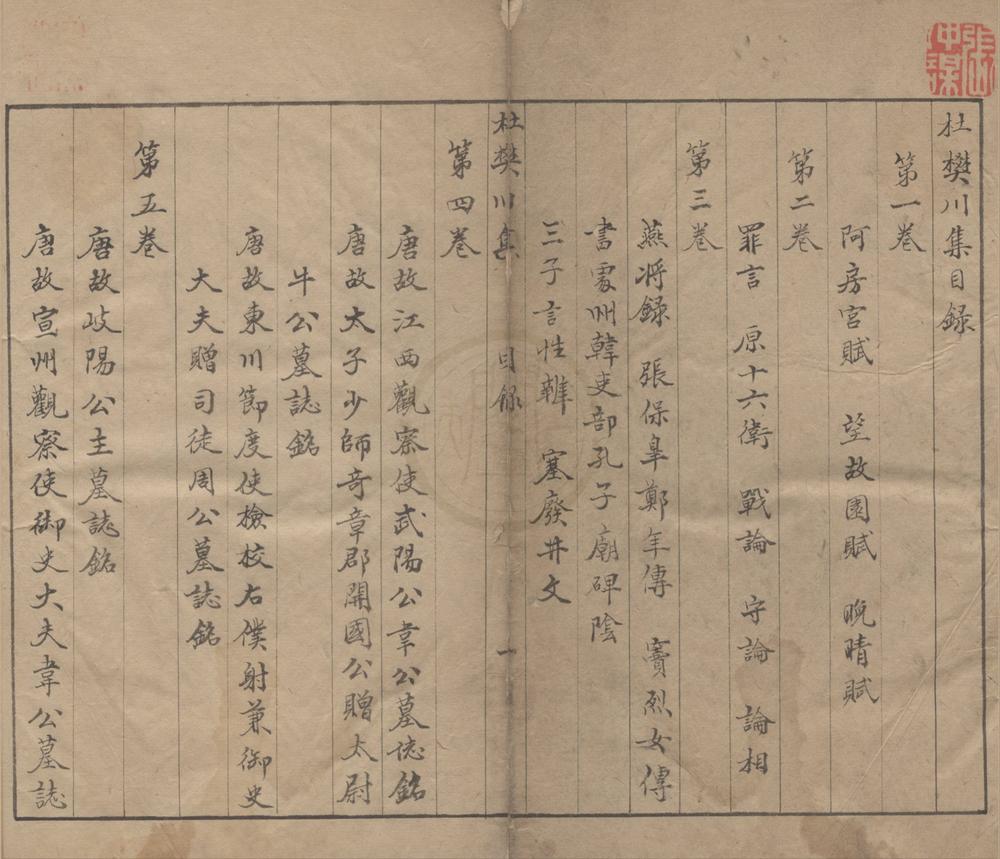 杜樊川集目録
第一卷
阿房宫賦 望故園賦 晚晴賦
第二卷
罪言 原十六衛 戰論 守論 論相
第三卷
燕將録 張保皐鄭年傳 竇烈女傳
書處州韓吏部孔子廟碑陰
三子言性辨 塞廢井文
杜樊川集 目録 一
第四卷
唐故江西觀察使武陽公韋公墓誌銘
唐故太子少師奇章郡開國公贈太尉
牛公墓誌銘
唐故東川節度使檢校右僕射兼御史
大夫贈司徒周公墓誌銘
第五卷
唐故岐陽公主墓誌銘
唐故宣州觀察使御史大夫韋公墓誌